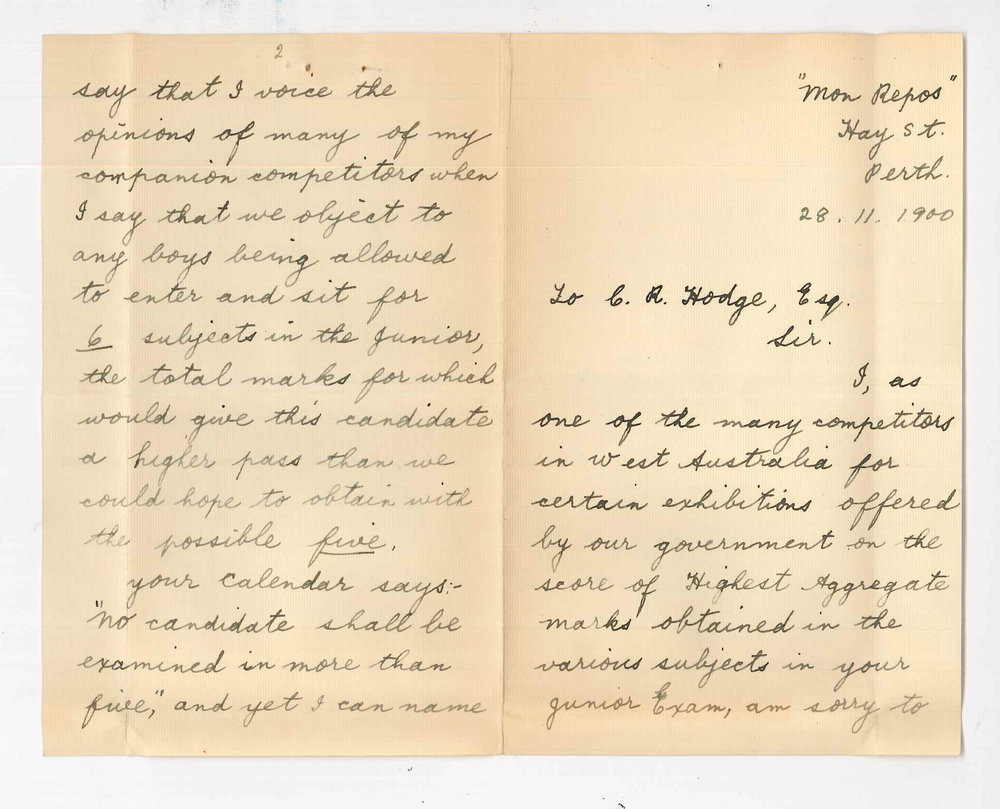 "Mon Repos"
Hay St.
Perth.
28. 11. 1900
To C. R. Hodge, Esq.
Sir.
I, as
one of the many competitors
in West Australia for
certain exhibitions offered
by our government on the
score of Highest Aggregate
marks obtained in the
various subjects in your
junior Exam, am sorry to
2
say that I voice the
opinions of many of my
companion competitors when
I say that we object to
any boys being allowed
to enter and sit for
6 subjects in the Junior,
the total marks for which
would give this candidate
a higher pass than we
could hope to obtain with
the possible five.
your Calendar says:-
"No candidate shall be
examined in more than
five," and yet I can name